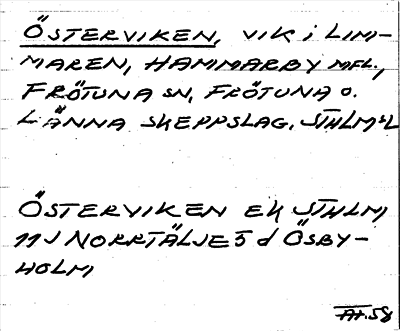 ÖSTERVIKEN, VIK i LIM-
MAREN, HAMMARBY MFL.,
FRÖTUNA SN, FRÖTUNA O.
LÄNNA SKEPPSLAG. STHLMS L
ÖSTERVIKEN EK STHLM
11J NORRTÄLJE 5 d ÖSBY-
HOLM